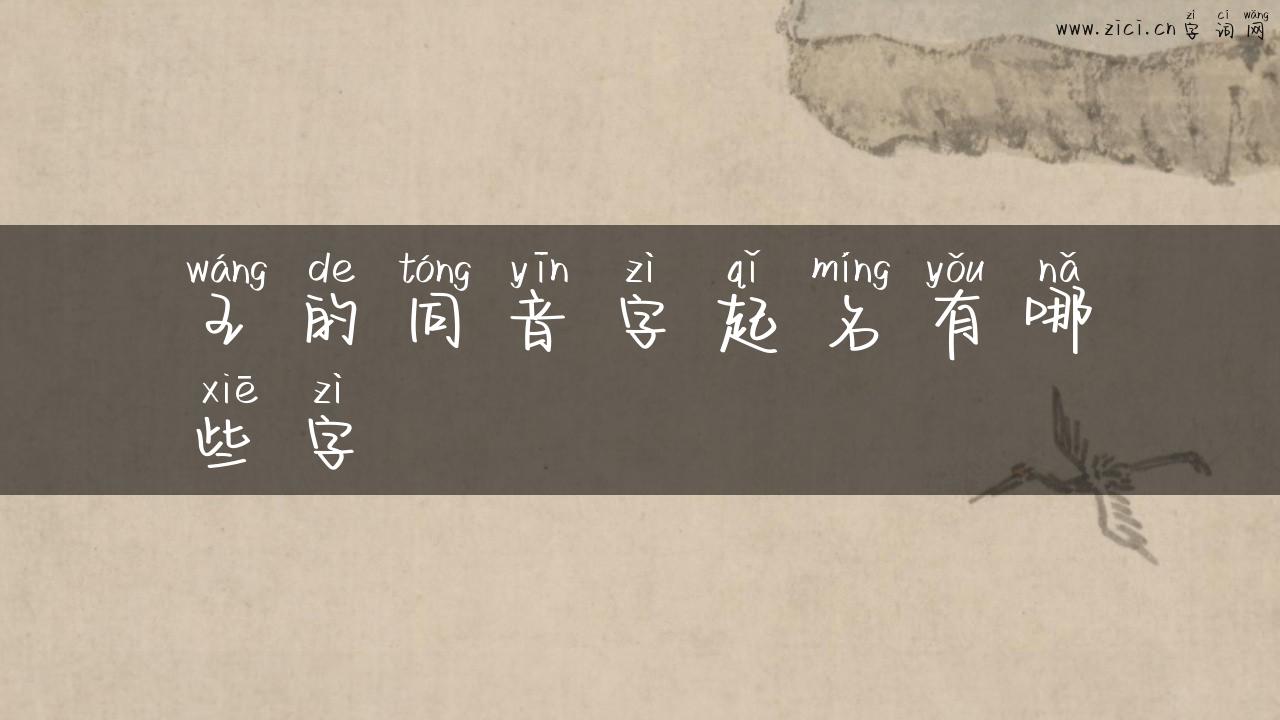 www.zici.cn zì cí wǎng
字词网
wáng de tóng yīn zì qǐ míng yǒu nǎ
王的同音字起名有哪
xiē zì
些字